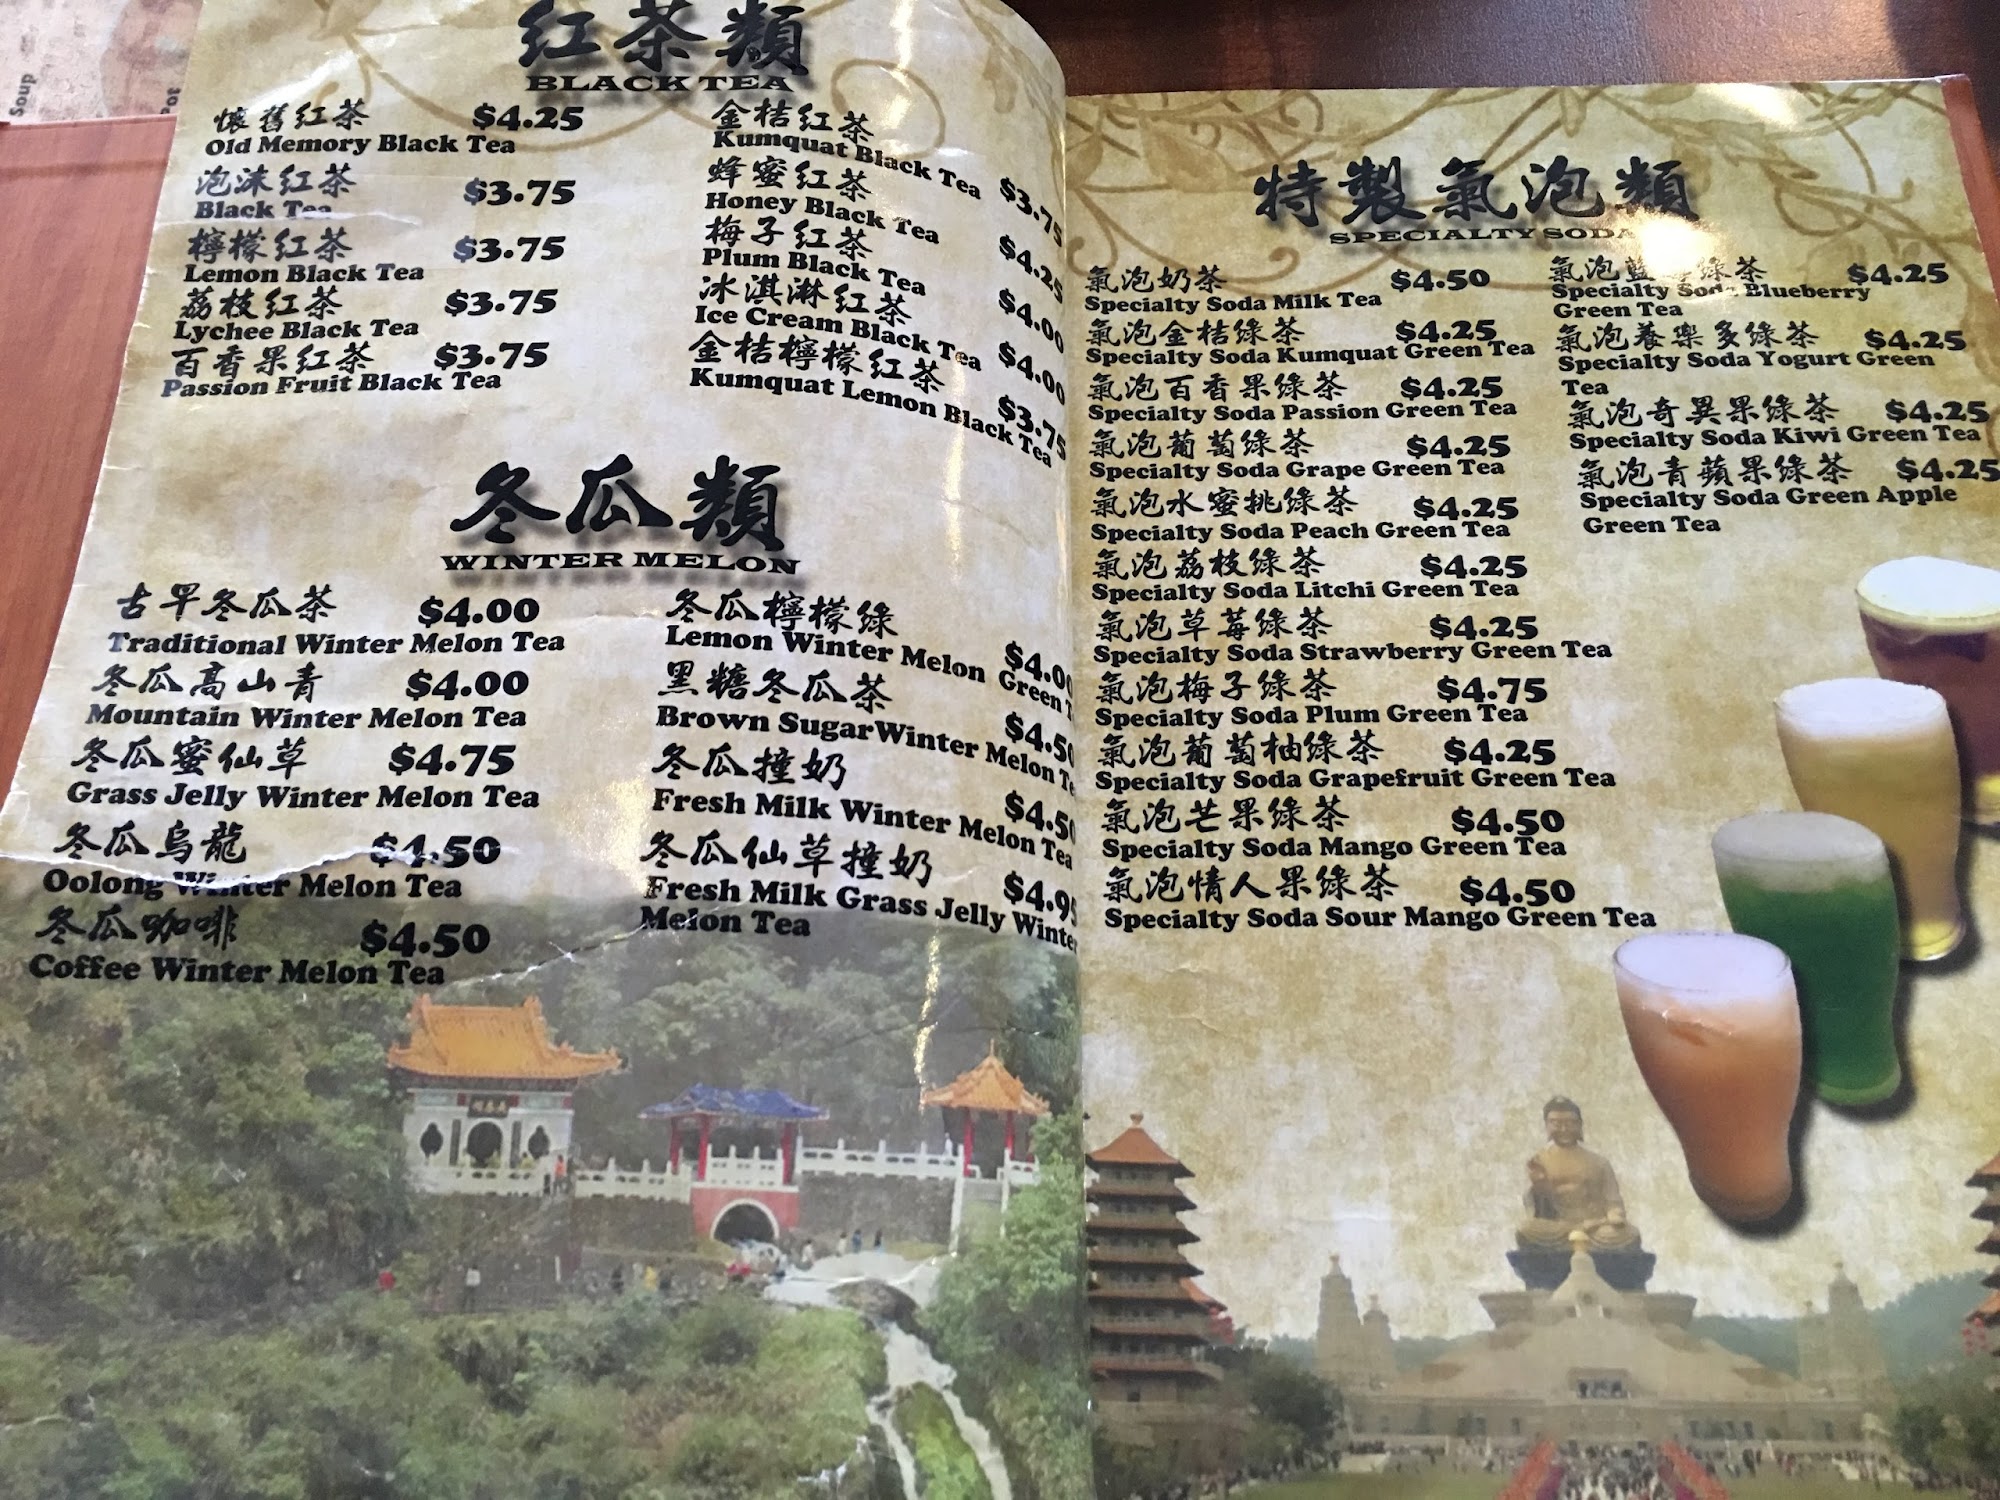 Soup
红茶類
BLACK TEA
懷舊红茶 $4.25
Old Memory Black Tea
泡沫红茶 $3.75
Black Tea
檸檬红茶 $3.75
Lemon Black Tea
荔枝红茶 $3.75
Lychee Black Tea
百香果红茶 $3.75
Passion Fruit Black Tea
金桔红茶
Kumquat Black Tea $3.75
蜂蜜红茶
Honey Black Tea $4.25
梅子红茶
Plum Black Tea $4.00
冰淇淋红茶
Ice Cream Black Tea $4.00
金桔檸檬红茶
Kumquat Lemon Black Tea $3.75
冬瓜類
WINTER MELON
古早冬瓜茶 $4.00
Traditional Winter Melon Tea
冬瓜高山青 $4.00
Mountain Winter Melon Tea
冬瓜蜜仙草 $4.75
Grass Jelly Winter Melon Tea
冬瓜烏龍 $4.50
Oolong Winter Melon Tea
冬瓜咖啡 $4.50
Coffee Winter Melon Tea
冬瓜檸檬綠 $4.00
Lemon Winter Melon Green
黑糖冬瓜茶 $4.50
Brown Sugar Winter Melon
冬瓜撞奶 $4.50
Fresh Milk Winter Melon Tea
冬瓜仙草撞奶 $4.95
Fresh Milk Grass Jelly Winter
Melon Tea
特製氣泡類
SPECIALTY SODA
氣泡奶茶 $4.50
Specialty Soda Milk Tea
氣泡金桔綠茶 $4.25
Specialty Soda Kumquat Green Tea
氣泡百香果綠茶 $4.25
Specialty Soda Passion Green Tea
氣泡葡萄綠茶 $4.25
Specialty Soda Grape Green Tea
氣泡水蜜挑綠茶 $4.25
Specialty Soda Peach Green Tea
氣泡荔枝綠茶 $4.25
Specialty Soda Litchi Green Tea
氣泡草莓綠茶 $4.25
Specialty Soda Strawberry Green Tea
氣泡梅子綠茶 $4.75
Specialty Soda Plum Green Tea
氣泡葡萄柚綠茶 $4.25
Specialty Soda Grapefruit Green Tea
氣泡芒果綠茶 $4.50
Specialty Soda Mango Green Tea
氣泡情人果綠茶 $4.50
Specialty Soda Sour Mango Green Tea
氣泡藍莓綠茶 $4.25
Specialty Soda Blueberry
Green Tea
氣泡養樂多綠茶 $4.25
Specialty Soda Yogurt Green
Tea
氣泡奇異果綠茶 $4.25
Specialty Soda Kiwi Green Tea
氣泡青蘋果綠茶 $4.25
Specialty Soda Green Apple
Green Tea